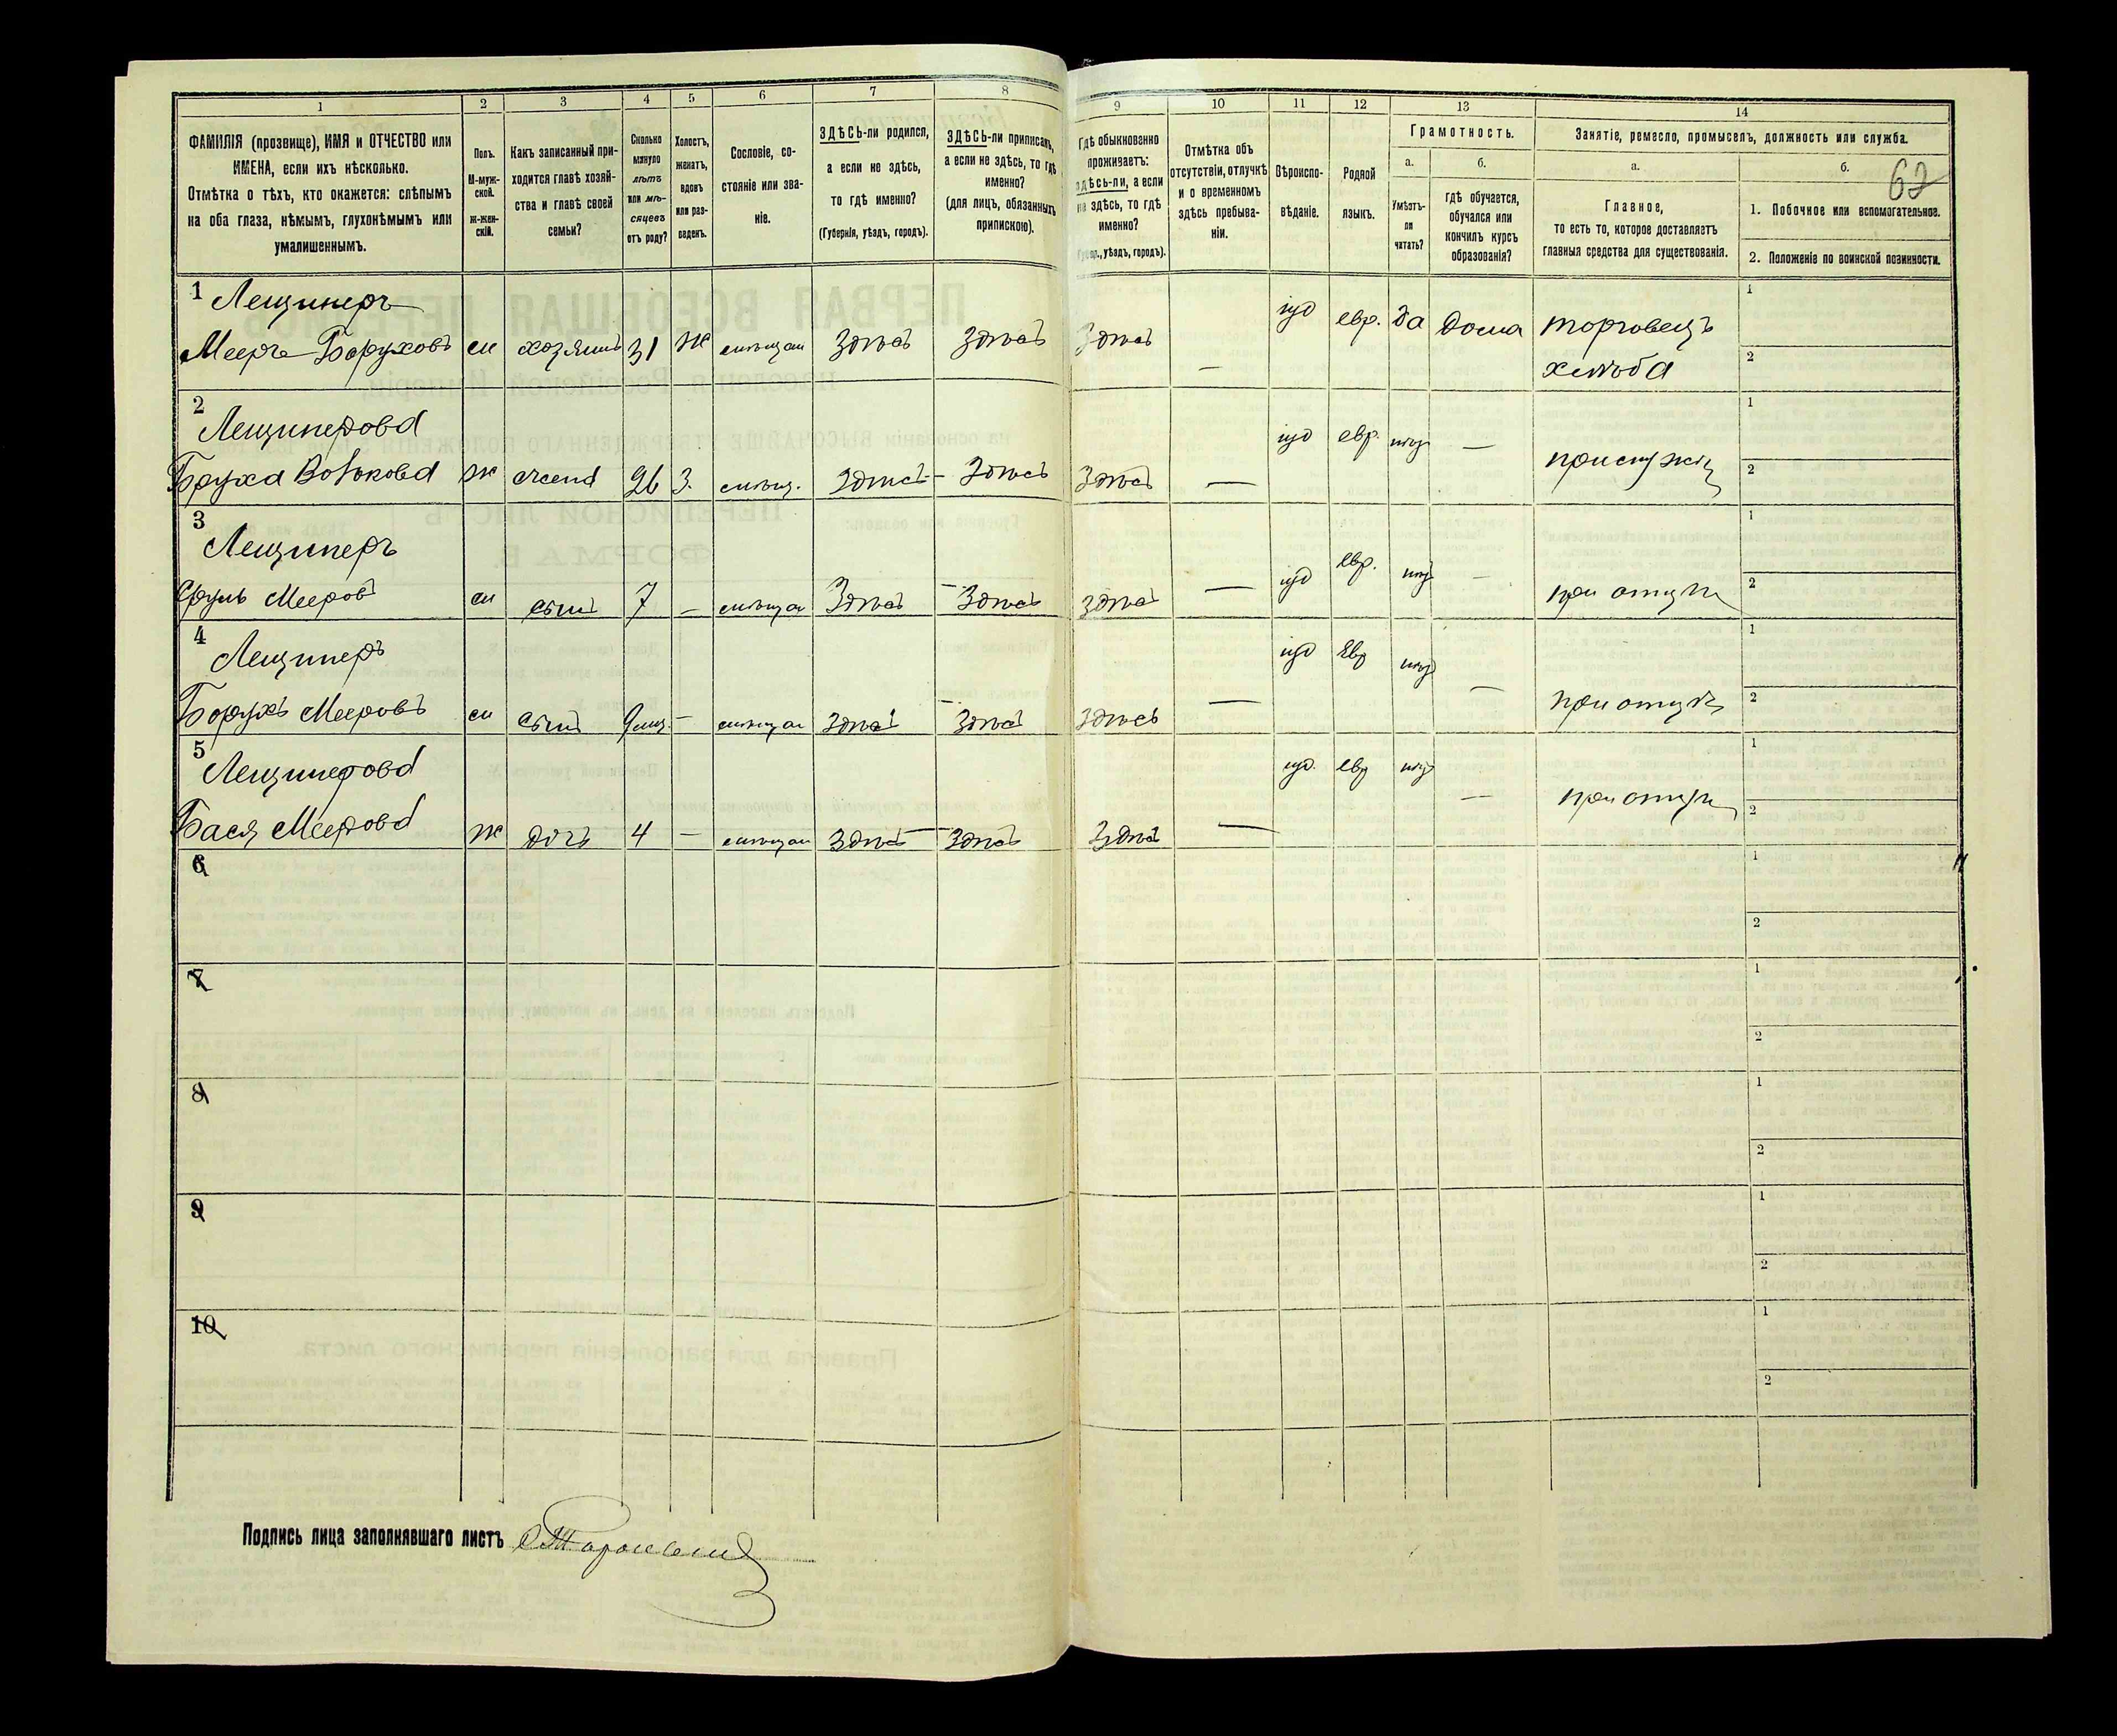 1 2 3 4 5 6 7 8 9 10 11 12 13 14
ФАМИЛІЯ (прозвище), ИМЯ и ОТЧЕСТВО или
ИМЕНА, если ихъ нѣсколько.
Отмѣтка о тѣхъ, кто окажется: слѣпымъ
на оба глаза, нѣмымъ, глухонѣмымъ или
умалишеннымъ.
Полъ.
М-муж-
ской.
Ж-жен-
скій.
Какъ записанный при-
ходится главѣ хозяй-
ства и главѣ своей
семьи?
Сколько
минуло
лѣтъ
или мѣ-
сяцевъ
отъ роду?
Холостъ,
женатъ,
вдовъ
или раз-
веденъ.
Сословіе, со-
стояніе или зва-
ніе.
ЗДѢСЬ-ли родился,
а если не здѣсь,
то гдѣ именно?
(Губернія, уѣздъ, городъ).
ЗДѢСЬ-ли приписанъ,
а если не здѣсь, то гдѣ
именно?
(для лицъ, обязанныхъ
припискою).
Гдѣ обыкновенно
проживаетъ:
здѣсь-ли, а если
не здѣсь, то гдѣ
именно?
(Губер., уѣздъ, городъ).
Отмѣтка объ
отсутствіи, отлучкѣ
и о временномъ
здѣсь пребыва-
ніи.
Вѣроиспо-
вѣданіе.
Родной
языкъ.
Грамотность.
а.
Умѣетъ-
ли
читать?
б.
гдѣ обучается,
обучался или
кончилъ курсъ
образованія?
Занятіе, ремесло, промыселъ, должность или служба.
а.
Главное,
то есть то, которое доставляетъ
главныя средства для существованія.
б.
62
1. Побочное или вспомогательное.
2. Положеніе по воинской повинности.
1 Лещинеръ
Мееръ Боруховъ м хозяинъ 31 ж мѣщан здѣсь здѣсь здѣсь — іуд евр. да дома торговецъ
хлѣба
1
2
2
Лещинерова
Бруха Волькова ж жена 26 з. мѣщ. здѣсь — здѣсь здѣсь — іуд евр. —
1
2
3
Лещинеръ
Сруль Мееров м сынъ 7 — мѣщан здѣсь — здѣсь здѣсь — іуд евр. — при отцѣ
1
2
4
Лещинеръ
Борухъ Мееровъ м сынъ 9 — мѣщан здѣсь — здѣсь здѣсь — іуд евр — при отцѣ
1
2
5
Лещинерова
Бася Меерова ж дочь 4 — мѣщан здѣсь — здѣсь здѣсь — іуд. евр — при отцѣ
1
2
6
1
2
7
1
2
8
1
2
9
1
2
10
1
2
Подпись лица заполнявшаго листъ